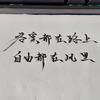 答案都在路上
自由都在风里